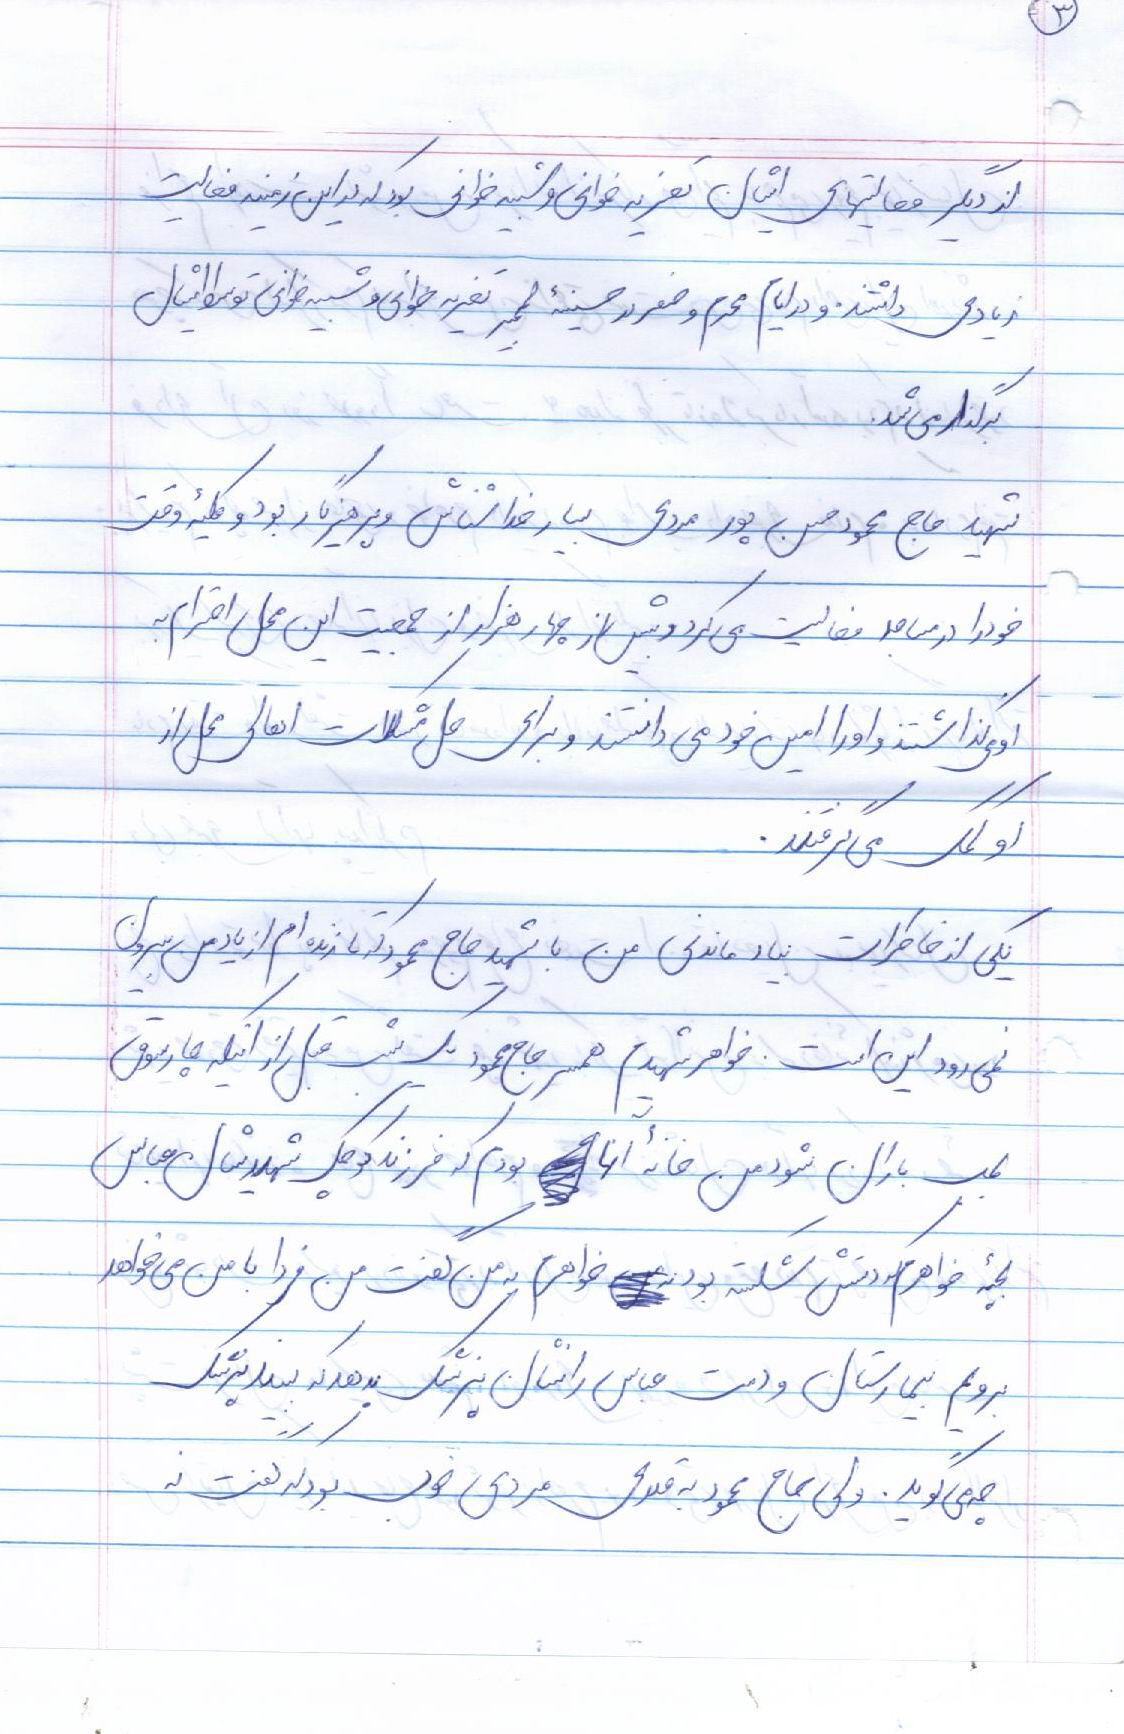 ۳
از دیگر فعالیتهای ایشان تعزیه خوانی و شبیه خوانی بود که در این زمینه فعالیت
زیادی داشتند. و در ایام محرم و صفر در حسینیهٔ تعزیه خوانی و شبیه خوانی توسط ایشان
برگذار می شد.
شهید حاج محمود حسن پور مردی بسیار خداشناس و پرهیزگار بود و کلیهٔ وقت
خود را در مساجد فعالیت می کرد و بیش از چهار هزار از جمعیت این محل احترام به
او می گذاشتند و او را امین خود می دانستند و برای حل مشکلات اهالی محل از
او کمک می گرفتند.
یکی از خاطرات بیاد ماندنی من با شهید حاج محمود که تا زنده ام از یاد من بیرون
نمی رود این است. خواهر شهیدم همسر حاج محمود یک شب قبل از اینکه
بمب باران شود من خانهٔ آنها بودم که فرزند کوچک شهیدشان عباس
بچهٔ خواهرم دستش شکسته بود خواهرم به من گفت من فردا با من می خواهد
برویم بیمارستان و دست عباس را نشان پزشک بدهد که ببیند پزشک
چه می گوید. ولی حاج محمود به قدری مردی خوب بود که گفت نه